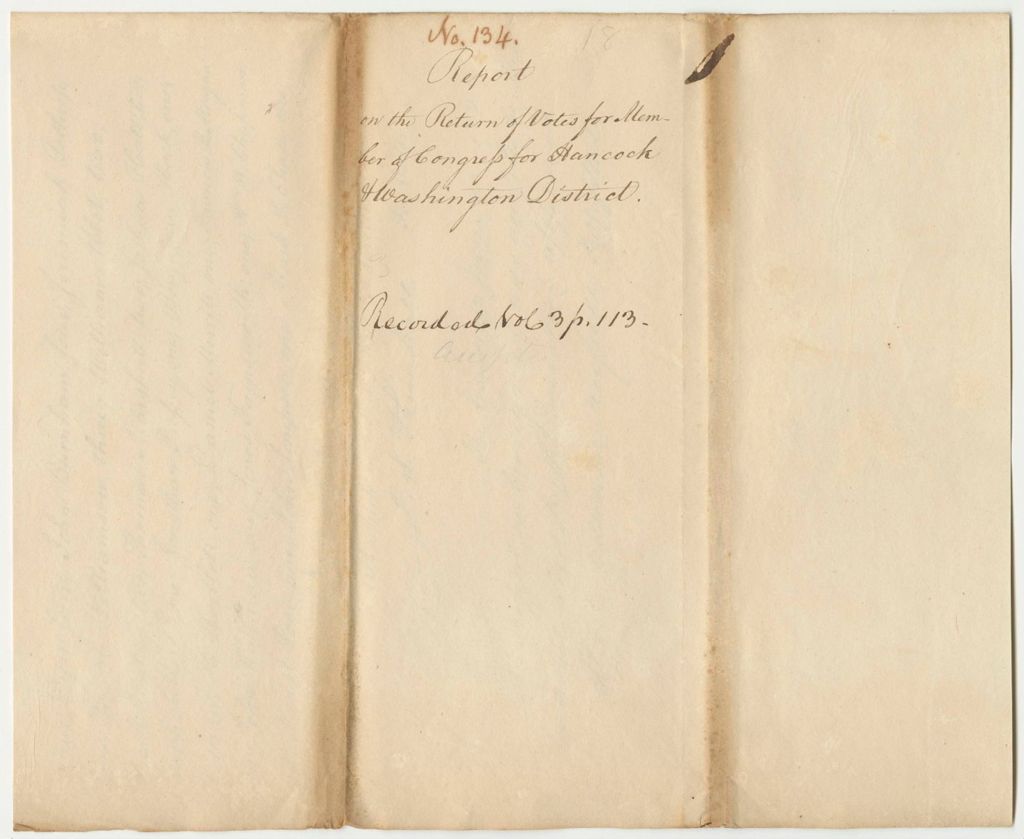 No. 134.
18
Report
on the Return of Votes for Mem-
ber of Congress for Hancock
& Washington District.
Recorded Vol 3 p. 113-